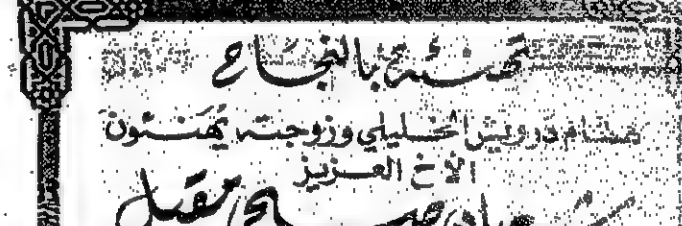 تهنئة بالنجاح
هشام درويش الخليلي وزوجته يهنئون
الأخ العزيز
صالح مقبل